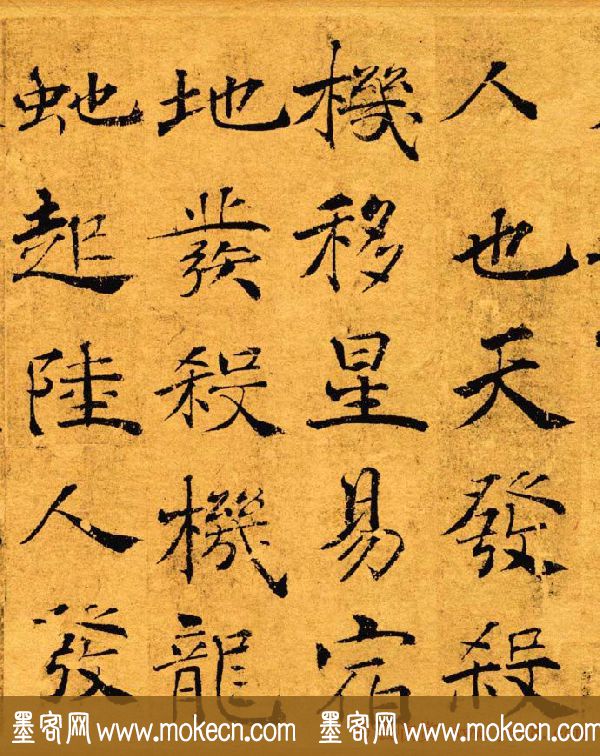 人也天發殺
機移星易宿
地發殺機龍
虵起陸人發
墨客网 www.mokecn.com 墨客网 www.mokecn.com